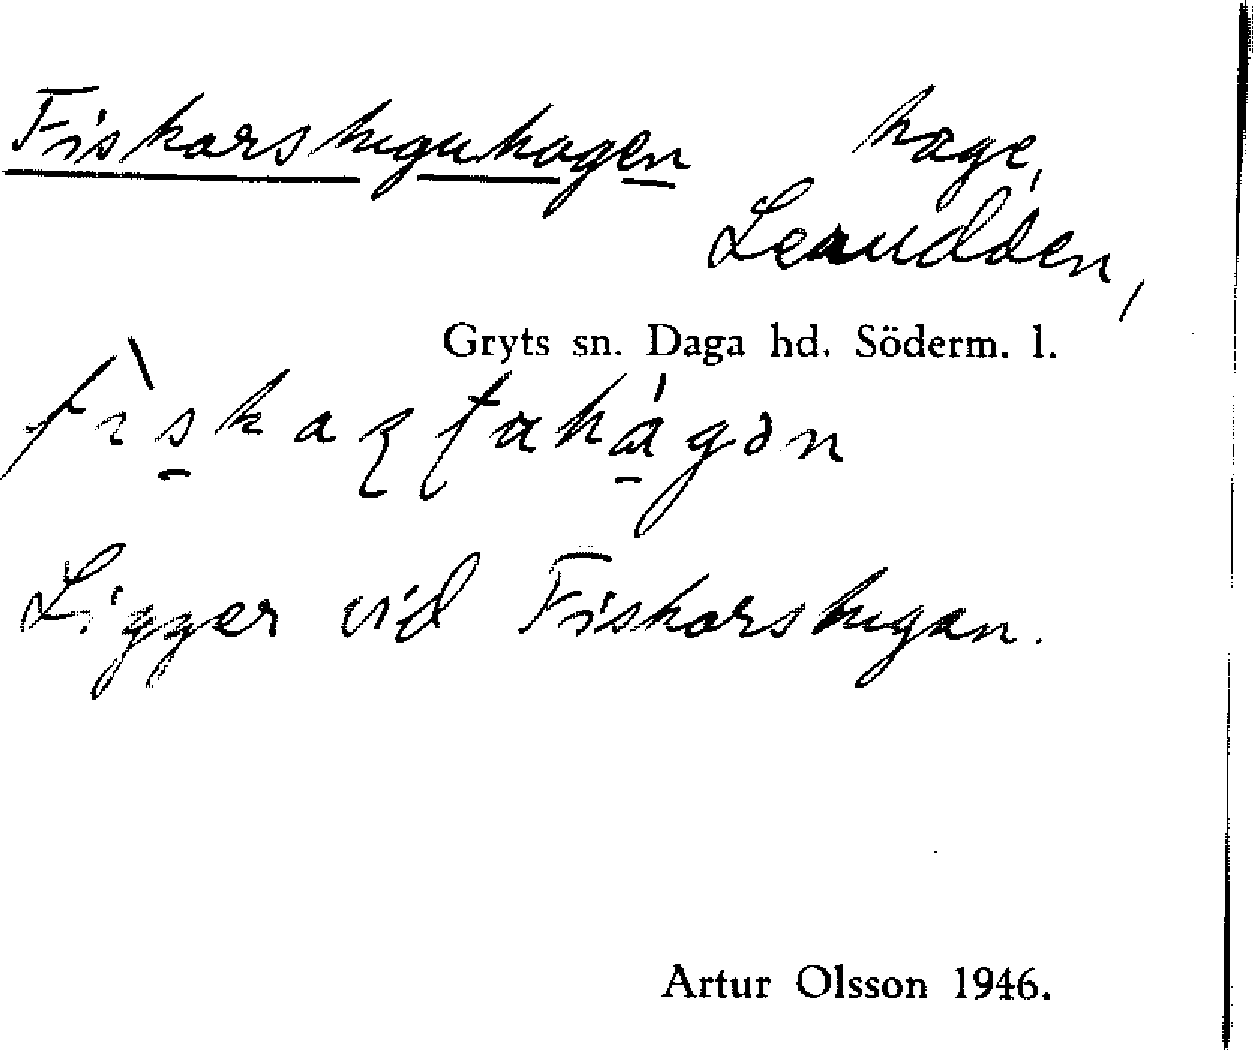 Fiskarstuguhagen hage,
Lerudden,
Gryts sn. Daga hd. Söderm. l.
Ligger vid Fiskarstugan.
Artur Olsson 1946.